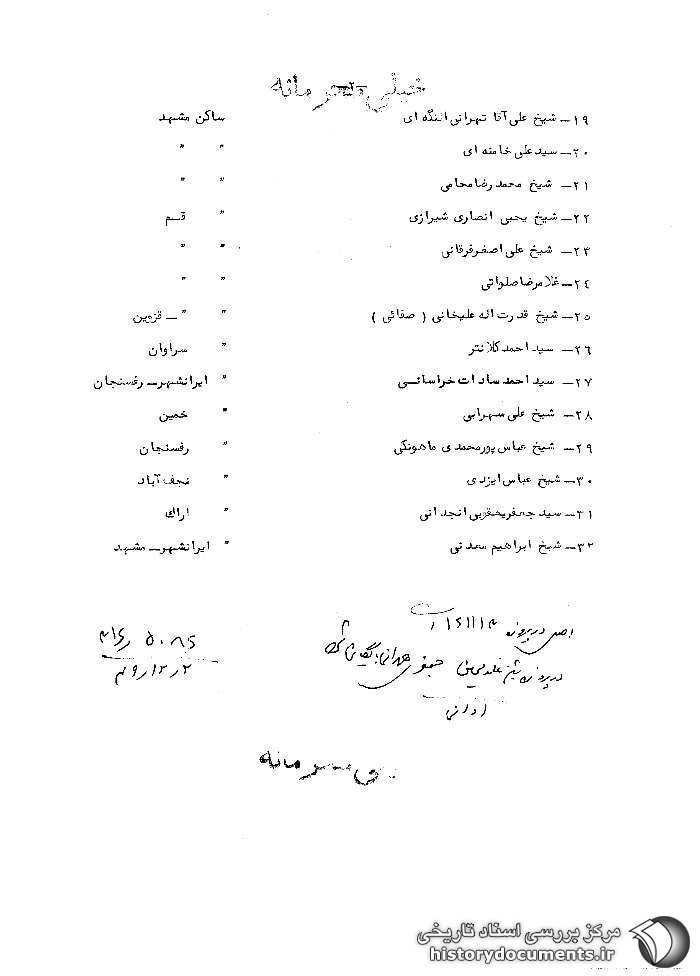 خیلی محرمانه
-۲-
۱۹ــ شیخ علی آقا تهرانی النگه ای ساکن مشهد
۲۰ــ سیدعلی خامنه ای " "
۲۱ــ شیخ محمدرضامحامی " "
۲۲ــ شیخ یحیی انصاری شیرازی " قـم
۲۳ــ شیخ علی اصغرفرقانی " "
۲۴ــ غلامرضاصلواتی " "
۲۵ــ شیخ قدرت اله علیخانی ( صفائی ) " "ــ قزوین
۲۶ــ سید احمد کلانتر " سراوان
۲۷ــ سید احمد سادات خراسانـی " ایرانشهرــ رفسنجان
۲۸ــ شیخ علی سهرابی " خمین
۲۹ــ شیخ عباس پورمحمدی ماهونکی " رفسنجان
۳۰ــ شیخ عباس ایزدی " نجف آباد
۳۱ــ سید جعفریعقوبی انجدانی " اراك
۳۲ــ شیخ ابراهیم معدنی " ایرانشهرــ مشهد
اصل در پرونده
در پرونده شیخ
محرمانه
مرکز بررسی اسناد تاریخی
historydocuments.ir